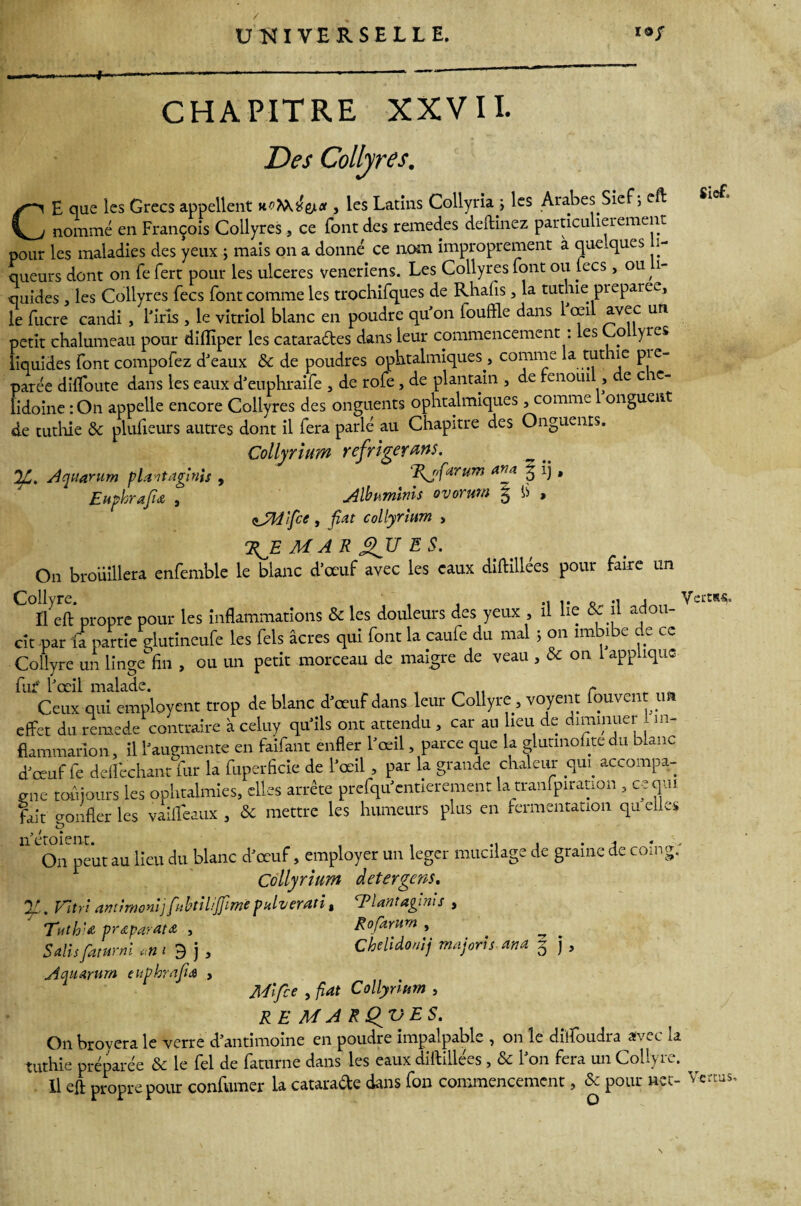 UNIVERSELLE. 105
CHAPITRE XXVII.
Des Collyres.
CE que les Grecs appellent κολλύρια, les Latins Collyria ; les Arabes Sief ; eſt
nommé en François Collyres, ce ſont des remedes deſtinez particulierement
pour les maladies des yeux ; mais on a donné ce nom improprement à quelques li-
queurs dont on ſe ſert pour les ulceres veneriens. Les Collyres ſont ou ſecs, ou li-
quides, les Collyres ſecs ſont comme les trochiſques de Rhaſis, la tuthie preparée,
le ſucre candi, l'iris, le vitriol blanc en poudre qu'on ſouffle dans l'œil avec un
petit chalumeau pour diſſiper les cataractes dans leur commencement : les Collyres
liquides ſont compoſez d'eaux & de poudres ophtalmiques, comme la tuthie pre-
parée diſſoute dans les eaux d'euphraiſe, de roſe, de plantain, de fenouil, de che-
lidoine : On appelle encore Collyres des onguents ophtalmiques, comme l'onguent
de tuthie & pluſieurs autres dont il ſera parlé au Chapitre des Onguents.
Sief.
Collyrium refrigerans.
℞. Aquarum plantaginis, Roſarum ana ℥ ij,
Euphraſiæ, Albuminis ovorum ℥ ß,
Miſce, fiat collyrium,
REMARQUES.
On broüillera enſemble le blanc d'œuf avec les eaux diſtillées pour faire un
Collyre.
Il eſt propre pour les inflammations & les douleurs des yeux, il lie & il adou-
Vertus.
cit par ſa partie glutineuſe les ſels âcres qui ſont la cauſe du mal ; on imbibe de ce
Collyre un linge fin, ou un petit morceau de maigre de veau, & on l'applique
ſur l'œil malade.
Ceux qui employent trop de blanc d'œuf dans leur Collyre, voyent ſouvent un
effet du remede contraire à celuy qu'ils ont attendu, car au lieu de diminuer l'in-
flammation, il l'augmente en faiſant enfler l'œil, parce que la glutinoſité du blanc
d'œuf ſe deſſechant ſur la ſuperficie de l'œil, par la grande chaleur qui accompa-
gne toûjours les ophtalmies, elles arrête preſqu'entierement la tranſpiration, ce qui
fait gonfler les vaiſſeaux, & mettre les humeurs plus en fermentation qu'elles
n'étoient.
On peut au lieu du blanc d'œuf, employer un leger mucilage de graine de coing.
Collyrium detergens.
℞. Vitri antimonij ſubtiliſſimè pulverati, Plantaginis,
Tuthiæ præparatæ, Roſarum,
Salis ſaturni ana ℈ j, Chelidonij majoris ana ℥ j,
Aquarum euphraſiæ,
Miſce, fiat Collyrium,
REMARQVES.
On broyera le verre d'antimoine en poudre impalpable, on le diſſoudra avec la
tuthie préparée & le ſel de ſaturne dans les eaux diſtillées, & l'on fera un Collyre.
Il eſt propre pour conſumer la cataracte dans ſon commencement, & pour net-
Vertus.
O